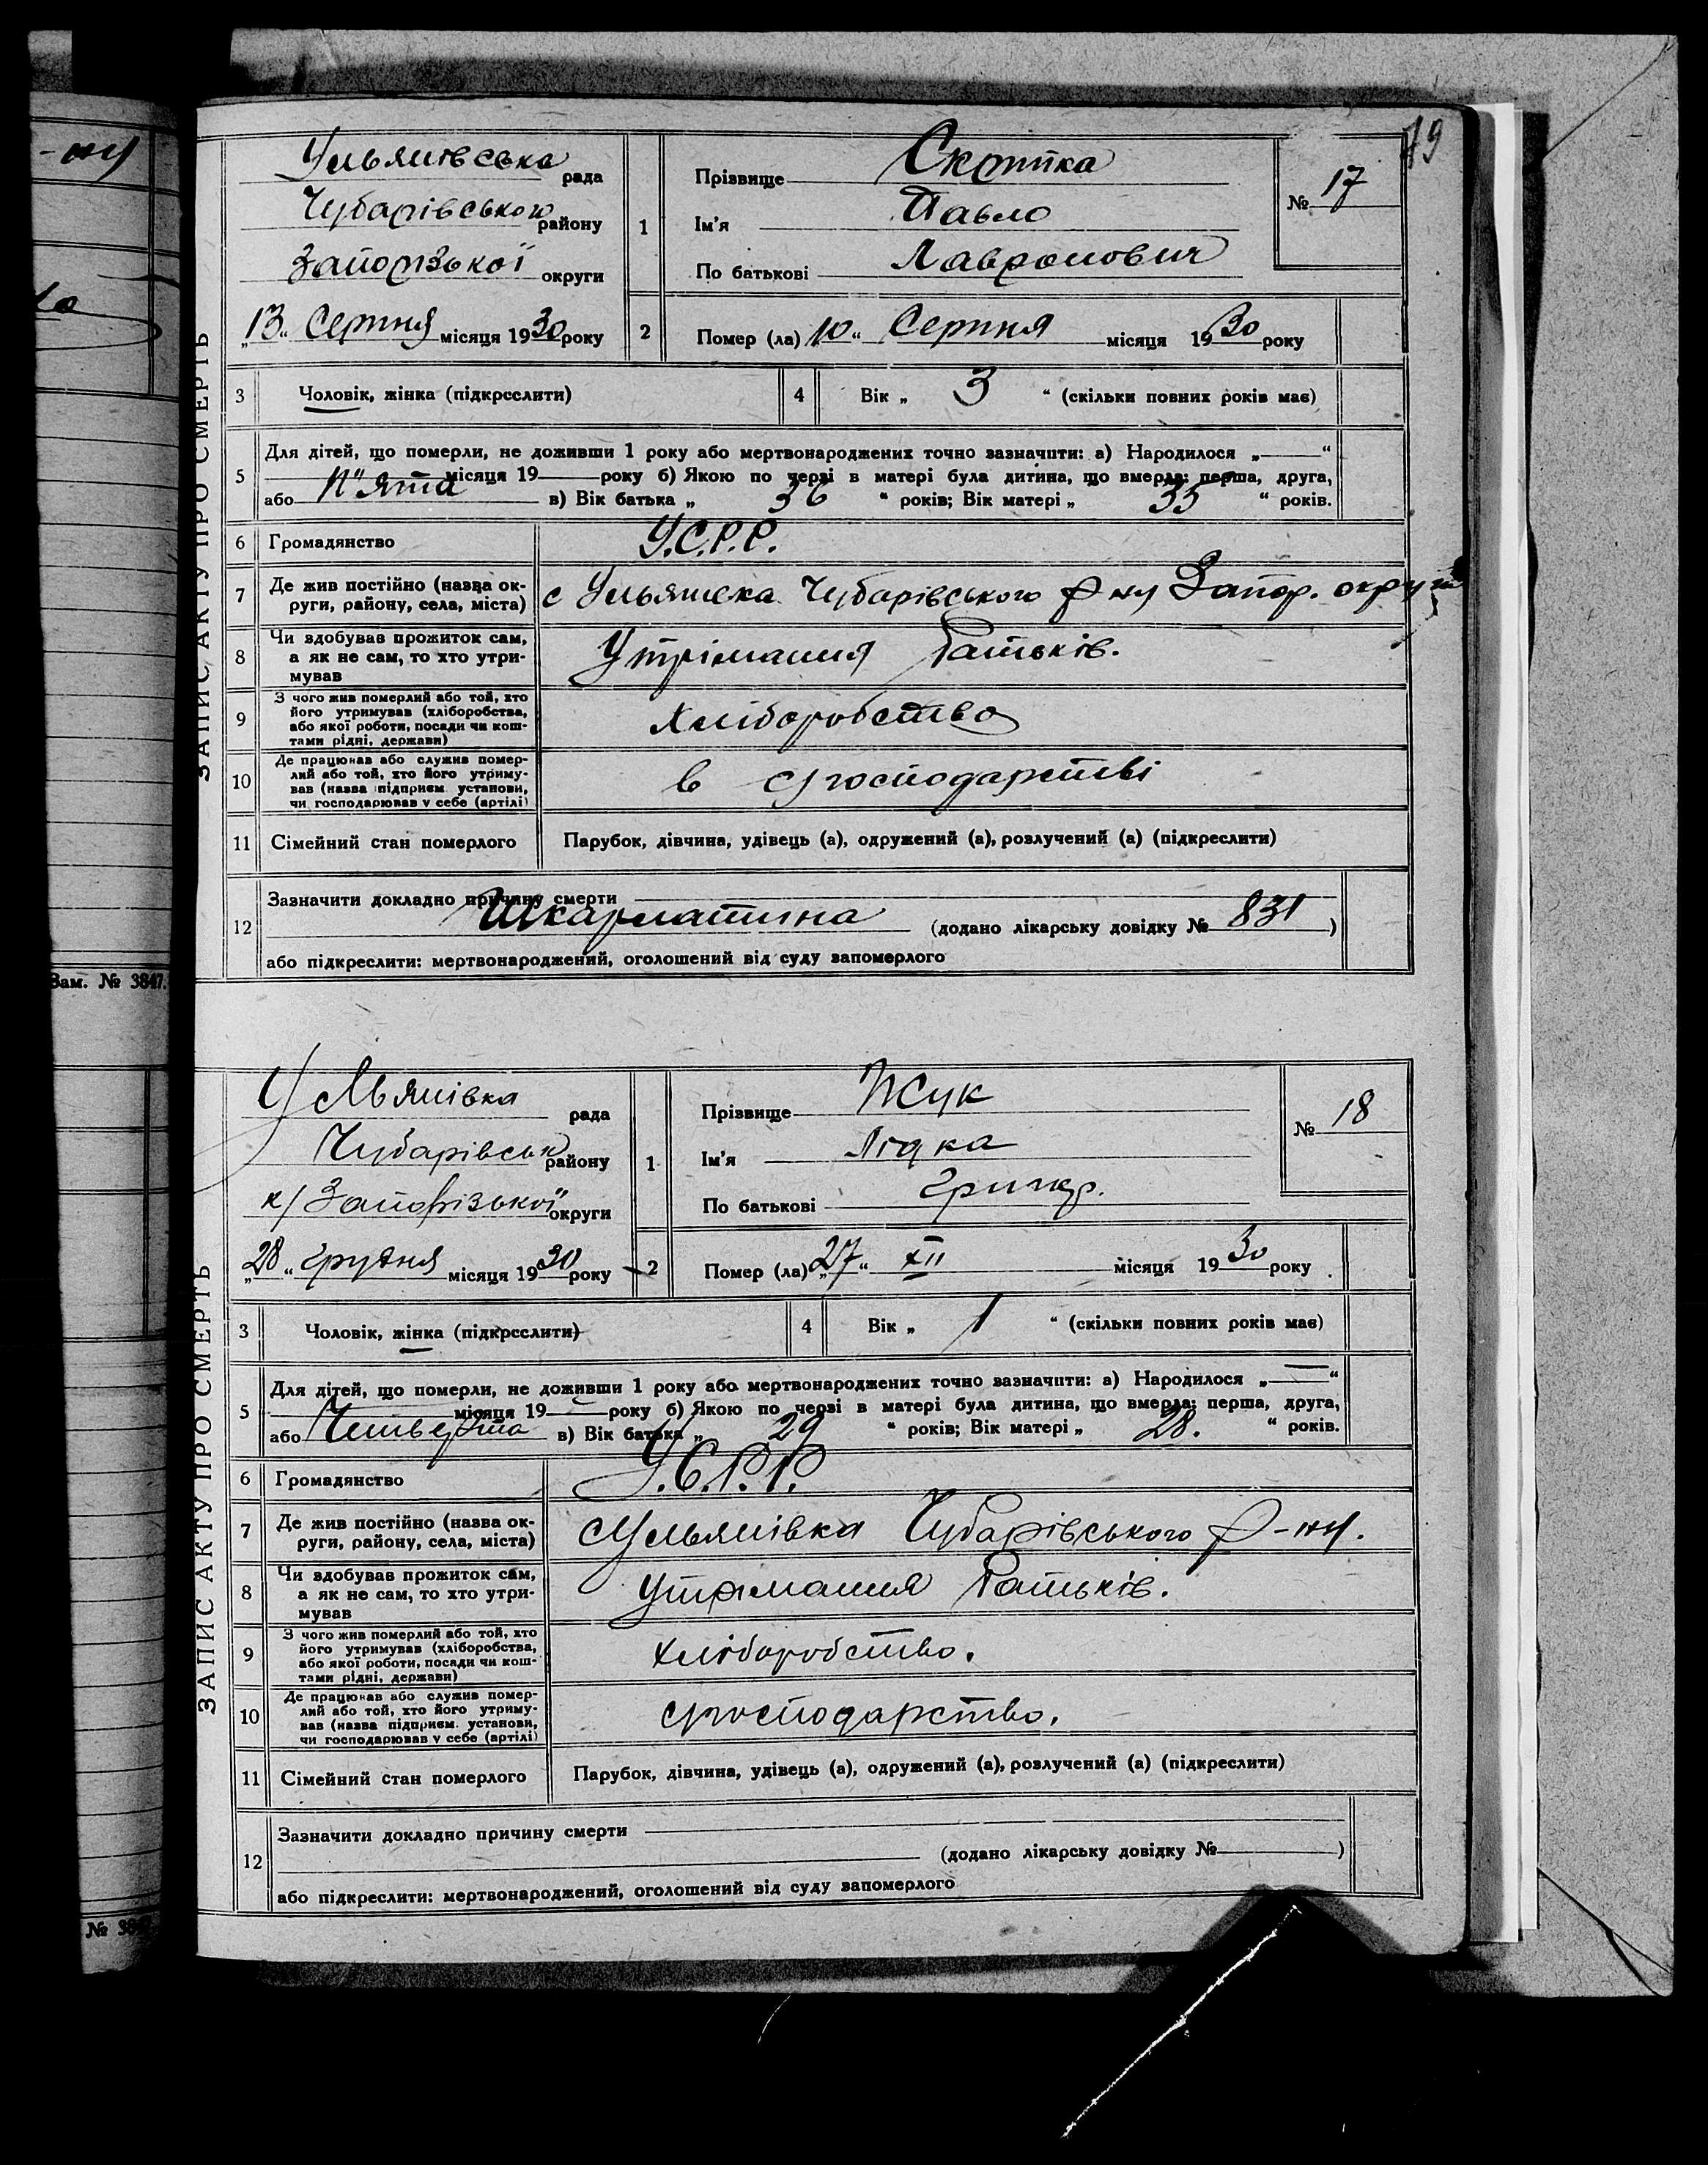 19
ЗАПИС АКТУ ПРО СМЕРТЬ
Ульянівська рада
Чубарівського району
Запорізької округи
„13“ Серпня місяця 1930 року
1
Прізвище Скрипка
Ім'я Павло
По батькові Лавронович
№ 17
2 Помер (ла) 10“ Серпня місяця 1930 року
3 Чоловік, жінка (підкреслити)
4 Вік „ 3 “ (скільки повних років має)
5 Для дітей, що померли, не доживши 1 року або мертвонароджених точно зазначити: а) Народилося „ “
місяця 19 року б) Якою по черзі в матері була дитина, що вмерла: перша, друга,
або п"ята в) Вік батька „ 36 “ років; Вік матері „ 35 “ років.
6 Громадянство У.С.Р.Р.
7 Де жив постійно (назва ок-
руги, району, села, міста) с Ульянівка Чубарівського р ну Запор. округи
8 Чи здобував прожиток сам,
а як не сам, то хто утри-
мував Утрімання батьків.
9 З чого жив померлий або той, хто
його утримував (хліборобства,
або якої роботи, посади чи кош-
тами рідні, держави) Хліборобство
10 Де працював або служив помер-
лий або той, хто його утриму-
вав (назва підприєм. установи,
чи господарював у себе (артілі) в с/господарстві
11 Сімейний стан померлого Парубок, дівчина, удівець (а), одружений (а), розлучений (а) (підкреслити)
12 Зазначити докладно причину смерти
Шкарлатина (додано лікарську довідку № 831 )
або підкреслити: мертвонароджений, оголошений від суду запомерлого
Зам. № 3847.
ЗАПИС АКТУ ПРО СМЕРТЬ
Ульянівка рада
Чубарівськ району
к/ Запорізької округи
„28“ Грудня місяця 1930 року
1
Прізвище Жук
Ім'я Лідка
По батькові Григор.
№ 18
2 Помер (ла) „27“ XII місяця 1930 року
3 Чоловік, жінка (підкреслити)
4 Вік „ 1 “ (скільки повних років має)
5 Для дітей, що померли, не доживши 1 року або мертвонароджених точно зазначити: а) Народилося „ “
місяця 19 року б) Якою по черзі в матері була дитина, що вмерла: перша, друга,
або Четверта в) Вік батька „ 29 “ років; Вік матері „ 28. “ років.
6 Громадянство У.С.Р.Р.
7 Де жив постійно (назва ок-
руги, району, села, міста) с Ульянівка Чубарівського р-ну.
8 Чи здобував прожиток сам,
а як не сам, то хто утри-
мував утримання батьків.
9 З чого жив померлий або той, хто
його утримував (хліборобства,
або якої роботи, посади чи кош-
тами рідні, держави) хліборобство.
10 Де працював або служив помер-
лий або той, хто його утриму-
вав (назва підприєм. установи,
чи господарював у себе (артілі) с/господарство.
11 Сімейний стан померлого Парубок, дівчина, удівець (а), одружений (а), розлучений (а) (підкреслити)
12 Зазначити докладно причину смерти
(додано лікарську довідку № )
або підкреслити: мертвонароджений, оголошений від суду запомерлого